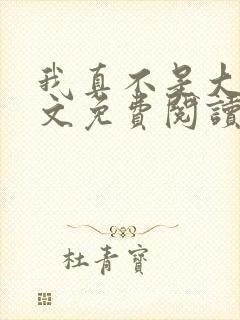 我真不是大
文免費閱讀
杜青寶